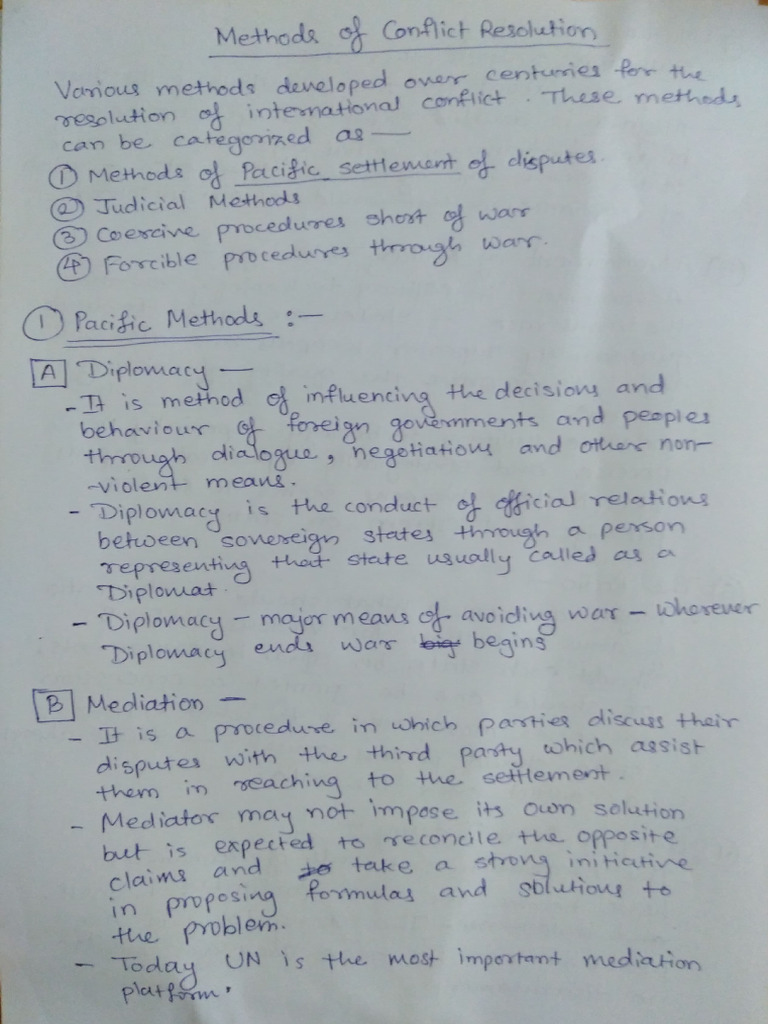 Methods of Conflict Resolution
Various methods developed over centuries for the
resolution of international conflict. These methods
can be categorized as —
① Methods of Pacific settlement of disputes.
② Judicial Methods
③ Coercive procedures short of war
④ Forcible procedures through war.
① Pacific Methods :—
A Diplomacy —
- It is method of influencing the decisions and
behaviour of foreign governments and peoples
through dialogue, negotiations and other non-
-violent means.
- Diplomacy is the conduct of official relations
between sovereign states through a person
representing that state usually called as a
Diplomat.
- Diplomacy - major means of avoiding war - wherever
Diplomacy ends war big begins
B Mediation —
- It is a procedure in which parties discuss their
disputes with the third party which assist
them in reaching to the settlement.
- Mediator may not impose its own solution
but is expected to reconcile the opposite
claims and to take a strong initiative
in proposing formulas and solutions to
the problem.
- Today UN is the most important mediation
platform.